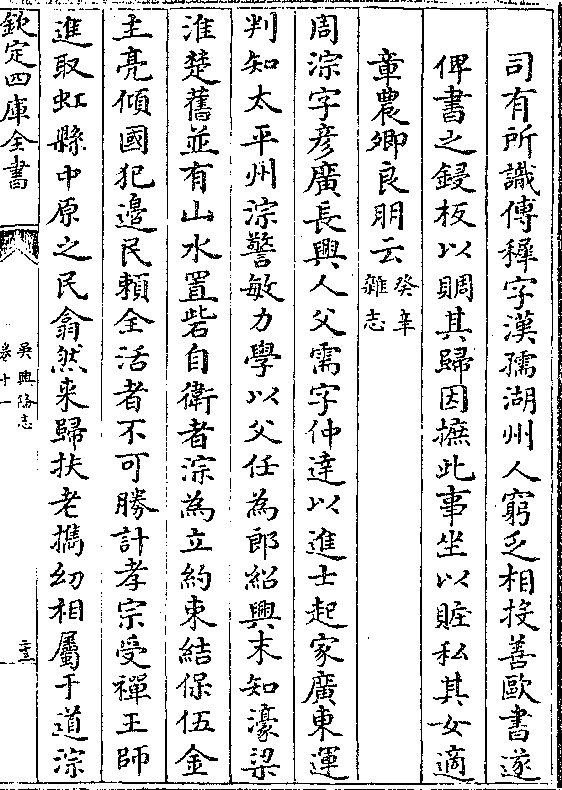 司有所識傳穉字漢孺湖州人窮乏相投善歐書遂
俾書之鋟板以賙其歸因摭此事坐以賍私其女適
章農卿良朋云癸辛雜志
周淙字彥廣長興人父需字仲達以進士起家廣東運
判知太平州淙警敏力學以父任為郎紹興末知濠梁
淮楚舊並有山水置砦自衛者淙為立約束結保伍金
主亮傾國犯邊民賴全活者不可勝計孝宗受禪王師
進取虹縣中原之民翕然来歸扶老攜幼相屬于道淙
欽定四庫全書
吳興備志
卷十一
二十三